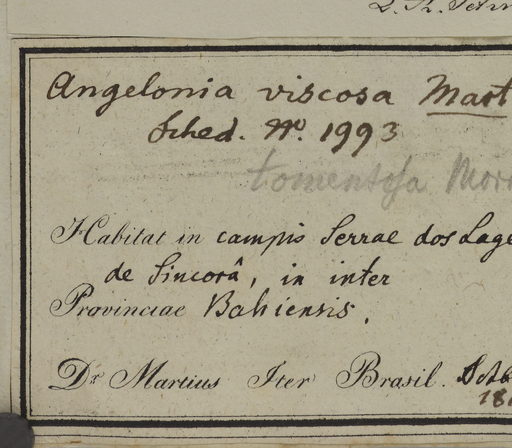 Angelonia viscosa Mart
Sched. No. 1993
tomentosa Mori
Habitat in campis Serrae dos Lage
de Sincorâ, in inter
Provinciae Bahiensis.
Dr. Martius Iter Brasil. Octb
18